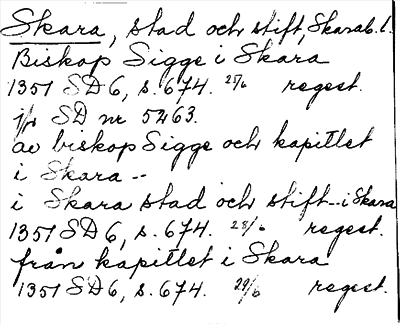 Skara, stad och stift, Skarab. l.
Biskop Sigge i Skara
1351 SD 6, s. 674. 25/6 regest.
jfr SD nr 5463.
av biskop Sigge och kapitlet
i Skara --
i Skara stad och stift -- i Skara
1351 SD 6, s. 674. 28/6 regest.
från kapitlet i Skara
1351 SD 6, s. 674. 29/6 regest.